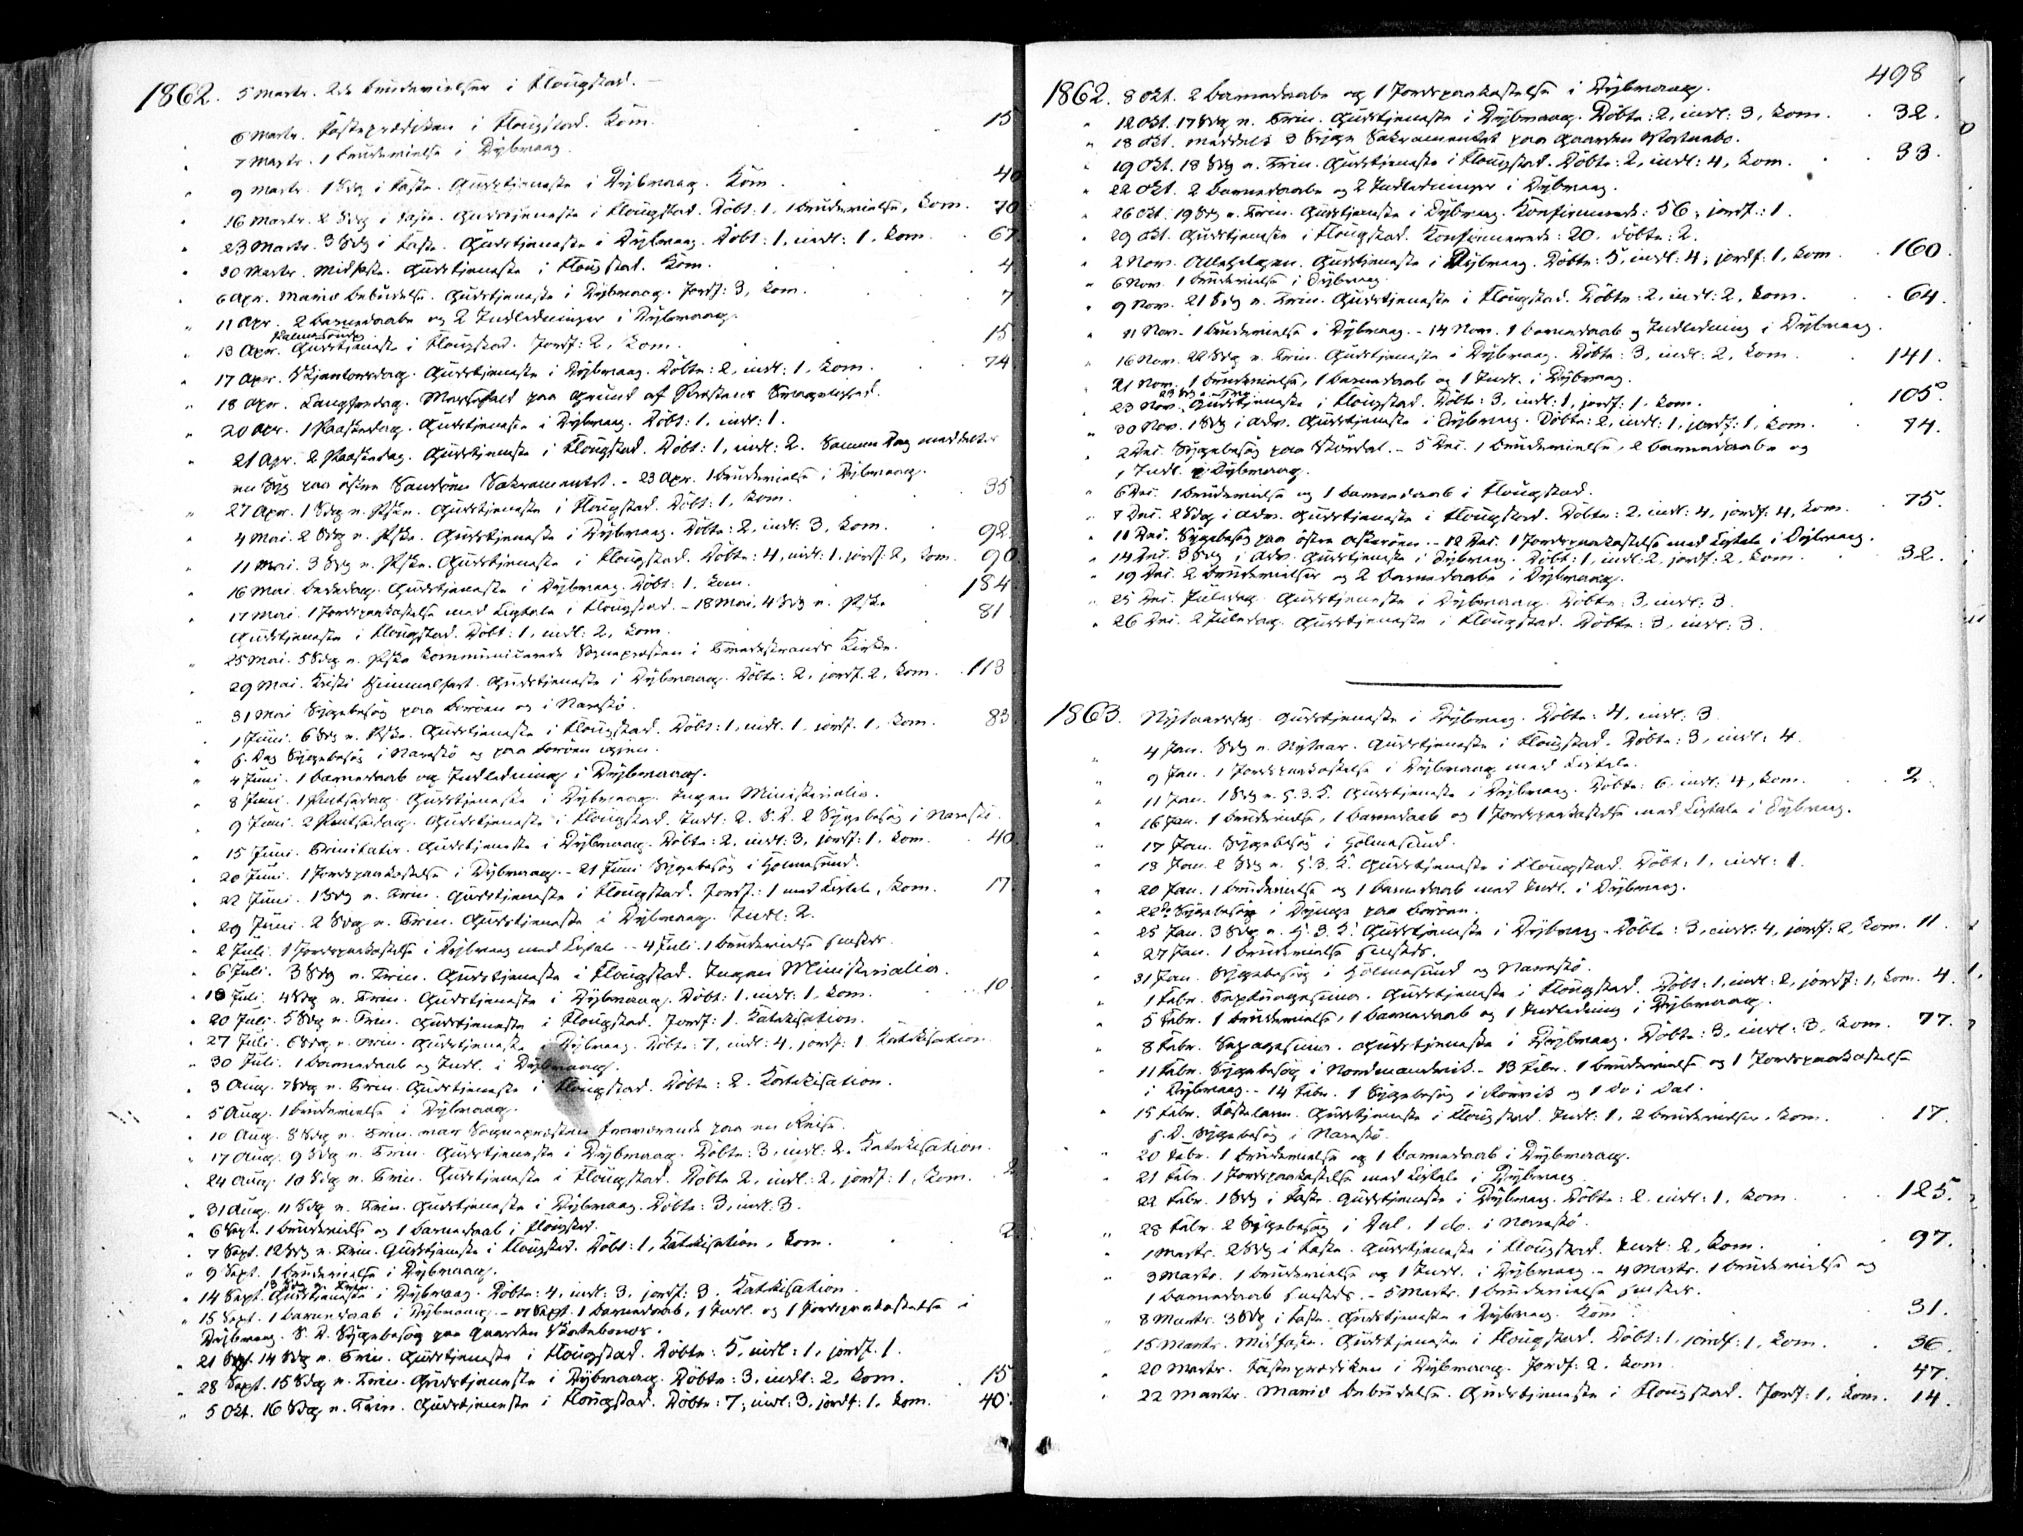 1862. 5 Marts. 2de Brudevielser i Flougstad.
6 Marts. Fasteprædiken i Flougstad. Kom. 15
" 7 Marts. 1 Brudevielse i Dybvaag.
" 9 Marts. 1 Sdg i Faste. Gudstjeneste i Dybvaag. Kom. 40
" 16 Marts. 2 Sdg i Faste. Gudstjeneste i Flougstad. Döbt: 1, 1 Brudevielse, Kom. 70
" 23 Marts. 3 Sdg i Faste. Gudstjeneste i Dybvaag. Döbt: 1, indl: 1, Kom. 67.
" 30 Marts. Midfaste. Gudstjeneste i Flougstad. Kom. 4
" 6 Apr. Mariæ Bebudelse. Gudstjeneste i Dybvaag. Jordf: 3, Kom. 7.
" 11 Apr. 2 Barnedaabe og 2 Indledninger i Dybvaag.
" 13 Apr. Palmesöndag Gudstjeneste i Flougstad. Jordf: 2, Kom. 15.
" 17 Apr. Skjærtorsdag. Gudstjeneste i Dybvaag. Döbte: 2, indl: 1, Kom. 74.
" 18 Apr. Langfredag. Messefald paa Grund af Præstens Svagelighed.
" 20 Apr. 1 Paaskedag. Gudstjeneste i Dybvaag. Döbt: 1, indl: 1.
" 21 Apr. 2 Paaskedag. Gudstjeneste i Flougstad. Döbt: 1, indl: 2. Samme Dag meddeltes
en Syg paa östre Sandöen Sakramentet. - 23 Apr. 1 Brudevielse i Dybvaag.
" 27 Apr. 1 Sdg e. Pske. Gudstjeneste i Flougstad. Döbt: 1, Kom. 35
" 4 Mai. 2 Sdg e. Pske. Gudstjeneste i Dybvaag. Döbte: 2, indl: 3, Kom. 92.
" 11 Mai. 3 Sdg e. Pske. Gudstjeneste i Flougstad. Döbte: 4, indl: 1, jordf: 2, Kom. 90.
" 16 Mai. Bededag. Gudstjeneste i Dybvaag. Döbt: 1. Kom. 184
" 17 Mai. 1 Jordspaakastelse med Ligtale i Flougstad. - 18 Mai. 4 Sdg e. Pske
Gudstjeneste i Flougstad. Döbt: 1, indl: 2, Kom. 81.
" 25 Mai. 5 Sdg e. Pske kommunicerede Sognepræsten i Tvedestrands Kirke.
" 29 Mai. Kristi Himmelfart. Gudstjeneste i Dybvaag. Döbte: 2, jordf. 2, Kom. 113
" 31 Mai Sygebesög paa Boröen og i Naresto.
" 1 Juni. 6 Sdg e. Pske. Gudstjeneste i Flougstad. Döbt: 1, indl. 1, jordf. 1, Kom. 83.
" S. Dag Sygebesög i Narestö og paa Boröen igjen.
" 4 Juni. 1 Barnedaab og Indledning i Dybvaag.
" 8 Juni. 1 Pintsedag. Gudstjeneste i Dybvaag. Ingen Ministerialia.
" 9 Juni. 2 Pintsedag. Gudstjeneste i Flougstad. Indl: 2. S. D. 2 Sygebesög i Narestö.
" 15 Juni. Trinitatis. Gudstjeneste i Dybvaag. Döbte: 2, indl: 3, jordf: 1, Kom. 40.
" 20 Juni. 1 Jordspaakastelse i Dybvaag. - 21 Juni Sygebesög i Holmesund.
" 22 Juni. 1 Sdg e. Trin. Gudstjeneste i Flougstad. Jordf: 1 med Ligtale, Kom. 17.
" 29 Juni. 2 Sdg e. Trin. Gudstjeneste i Dybvaag. Indl: 2.
" 2 Juli. 1 Jordspaakastelse i Dybvaag med Ligtale - 4 Juli. 1 Brudevielse sammesteds.
" 6 Juli. 3 Sdg e. Trin. Gudstjeneste i Flougstad. Ingen Ministerialia.
" 13 Juli. 4 Sdg e. Trin. Gudstjeneste i Dybvaag. Döbt: 1, indl: 1, Kom. 10
" 20 Juli. 5 Sdg e. Trin. Gudstjeneste i Flougstad. Jordf: 1. Katekisation.
" 27 Juli. 6 Sdg e. Trin. Gudstjeneste i Dybvaag. Döbte: 7, indl: 4, jordf: 1 Katekisation
" 30 Juli. 1 Barnedaab og Indl. i Dybvaag.
" 3 Aug. 7 Sdg e. Trin. Gudstjeneste i Flougstad. Döbte: 2. Katekisation.
" 5 Aug. 1 Brudevielse i Dybvaag.
" 10 Aug. 8 Sdg e. Trin. var Sognepræsten fraværende paa en Reise.
" 17 Aug. 9 Sdg e. Trin. Gudstjeneste i Dybvaag. Döbte: 3, indl: 2. Katekisation.
" 24 Aug. 10 Sdg e. Trin. Gudstjeneste i Flougstad. Döbte 2, indl: 2, jordf: 1, Kom. 2
" 31 Aug. 11 Sdg e. Trin. Gudstjeneste i Dybvaag. Döbte: 3, indl. 3.
" 6 Sept. 1 Brudevielse og 1 Barnedaab i Flougstad.
" 7 Sept. 12 Sdg e. Trin. Gudstjeneste i Flougstad. Döbt: 1, Katekisation, Kom. 2
" 9 Sept. 1 Brudevielse i Dybvaag.
" 14 Sept. 13 Sdg e. Trin. Gudstjeneste i Dybvaag. Döbte: 4, indl: 3. jordf: 3. Katekisation.
" 15 Sept. 1 Barnedaab i Dybvaag. - 17 Sept. 1 Barnedaab, 1 Indl. og 1 Jordspaakastelse i
Dybvaag. S. D. Sygebesög paa Gaarden
" 21 Sept. 14 Sdg e. Trin. Gudstjeneste i Flougstad. Döbte: 5, indl: 1, jordf. 1.
" 28 Sept. 15 Sdg e. Trin. Gudstjeneste i Dybvaag. Döbte: 3, indl: 2, Kom. 15
" 5 Okt. 16 Sdg e. Trin. Gudstjeneste i Flougstad. Döbte: 7, indl: 3, jordf: 1, Kom. 40.
498
1862. 8 Okt. 2 Barnedaabe og 1 Jordspaakastelse i Dybvaag.
" 12 Okt. 17 Sdg e. Trin. Gudstjeneste i Dybvaag. Döbte: 2, indl: 3, Kom. 32.
" 18 Okt. meddelt 3 Syge Sakramentet paa Gaarden
" 19 Okt. 18 Sdg e. Trin. Gudstjeneste i Flougstad. Döbte: 2, indl: 4, Kom. 33.
" 22 Okt. 2 Barnedaabe og 2 Indledninger i Dybvaag.
" 26 Okt. 19 Sdg e. Trin. Gudstjeneste i Dybvaag. Konfirmerede: 56, jordf.: 1.
" 29 Okt. Gudstjeneste i Flougstad. Konfirmerede: 20. Döbte: 2.
" 2 Nov. Allehelgen. Gudstjeneste i Dybvaag. Döbte: 5, indl: 4, jordf: 1, Kom. 160.
" 6 Nov. 1 Brudevielse i Dybvaag.
" 9 Nov. 21 Sdg e. Trin. Gudstjeneste i Flougstad. Döbte: 2, indl: 2, Kom. 64.
" 11 Nov. 1 Brudevielse i Dybvaag. - 14 Nov. 1 Barnedaab og Indledning i Dybvaag.
" 16 Nov. 22 Sdg e. Trin. Gudstjeneste i Dybvaag. Döbte: 3, indl: 2, Kom. 141.
" 21 Nov. 1 Brudevielse, 1 Barnedaab og 1 Indl. i Dybvaag.
" 23 Nov. 23 Sdg e. Trin. Gudstjeneste i Flougstad. Döbte: 3, indl: 1, jordf: 1. Kom. 105.
" 30 Nov. 1 Sdg i Adv. Gudstjeneste i Dybvaag. Döbte: 2, indl: 1, jordf: 1, Kom. 74.
" 2 Dec. Sygebesög paa - 5 Dec. 1 Brudevielse, 2 Barnedaabe og
1 Indl. i Dybvaag.
" 6 Dec. 1 Brudevielse og 1 Barnedaab i Flougstad.
" 7 Dec. 2 Sdg i Adv. Gudstjeneste i Flougstad. Döbte: 2, indl: 4, jordf: 4, Kom. 75.
" 11 Dec. Sygebesög paa östre - 12 Dec. 1 Jordspaakastelse med Ligtale i Dybvaag.
" 14 Dec. 3 Sdg i Adv. Gudstjeneste i Dybvaag. Döbt: 1, indl: 2, jordf: 2, Kom. 32.
" 19 Dec. 2 Brudevielser og 2 Barnedaabe i Dybvaag.
" 25 Dec. Juledag. Gudstjeneste i Dybvaag. Döbte: 3, indl: 3.
" 26 Dec. 2 Juledag. Gudstjeneste i Flougstad. Döbte: 3, indl: 3.
1863. Nytaarsdag. Gudstjeneste i Dybvaag. Döbte: 4, indl: 3
" 4 Jan. Sdg e. Nytaar. Gudstjeneste i Flougstad. Döbte: 3, indl: 4.
" 9 Jan. 1 Jordspaakastelse i Dybvaag med Ligtale.
" 11 Jan. 1 Sdg e. H. 3. K. Gudstjeneste i Dybvaag. Döbte: 6, indl: 4, Kom. 2
" 16 Jan. 1 Brudevielse, 1 Barnedaab og 1 Jordspaakastelse med Ligtale i Dybvaag.
" 17 Jan. Sygebesög i Holmesund.
" 18 Jan. 2 Sdg e. H. 3. K. Gudstjeneste i Flougstad. Döbt: 1, indl: 1.
" 20 Jan. 1 Brudevielse og 1 Barnedaab med Indl. i Dybvaag.
" 22de Sygebesög i Dynge paa Boröen.
" 25 Jan. 3 Sdg e. H. 3. K. Gudstjeneste i Dybvaag. Döbte: 3, indl: 4, jordf: 2, Kom. 11.
" 27 Jan. 1 Brudevielse sammesteds.
" 31 Jan. Sygebesög i Holmesund og Narestö.
" 1 Febr. Septuagesima. Gudstjeneste i Flougstad. Döbt: 1, indl: 2, jordf: 1, Kom. 4
" 5 Febr. 1 Brudevielse, 1 Barnedaab og 1 Indledning i Dybvaag.
" 8 Febr. Sexagesima. Gudstjeneste i Dybvaag. Döbte: 3, indl: 3, Kom. 77.
" 11 Febr. Sygebesög i Nordmandvik. - 13 Febr. 1 Brudevielse og 1 Jordspaakastelse
i Dybvaag. - 14 Febr. 1 Sygebesög i og 1 do i Dal.
" 15 Febr. Fastelavn. Gudstjeneste i Flougstad. Indl: 1, 2 Brudevielser, Kom. 17.
S. D. Sygebesög i Narestö.
" 20 Febr. 1 Brudevielse og 1 Barnedaab i Dybvaag.
" 21 Febr. 1 Jordspaakastelse med Ligtale i Dybvaag.
" 22 Febr. 1 Sdg i Faste. Gudstjeneste i Dybvaag. Döbte: 2, indl: 1, Kom. 125.
" 28 Febr. 2 Sygebesög i Dal, 1 do. i Narestö.
" 1 Marts. 2 Sdg i Faste. Gudstjeneste i Flougstad. Indl: 2, Kom. 97.
" 3 Marts. 1 Brudevielse og 1 Indl. i Dybvaag. - 4 Marts. 1 Brudevielse og
1 Barnedaab sammesteds. - 5 Marts. 1 Brudevielse sammesteds.
" 8 Marts. 3 Sdg i Faste. Gudstjeneste i Dybvaag. Kom. 31.
" 15 Marts. Midfaste. Gudstjeneste i Flougstad. Döbt: 1, jordf: 1, Kom. 36.
" 20 Marts. Fasteprædiken i Dybvaag. Jordf: 2. Kom. 47.
" 22 Marts. Mariæ Bebudelse. Gudstjeneste i Flougstad. Jordf: 1, Kom. 14.